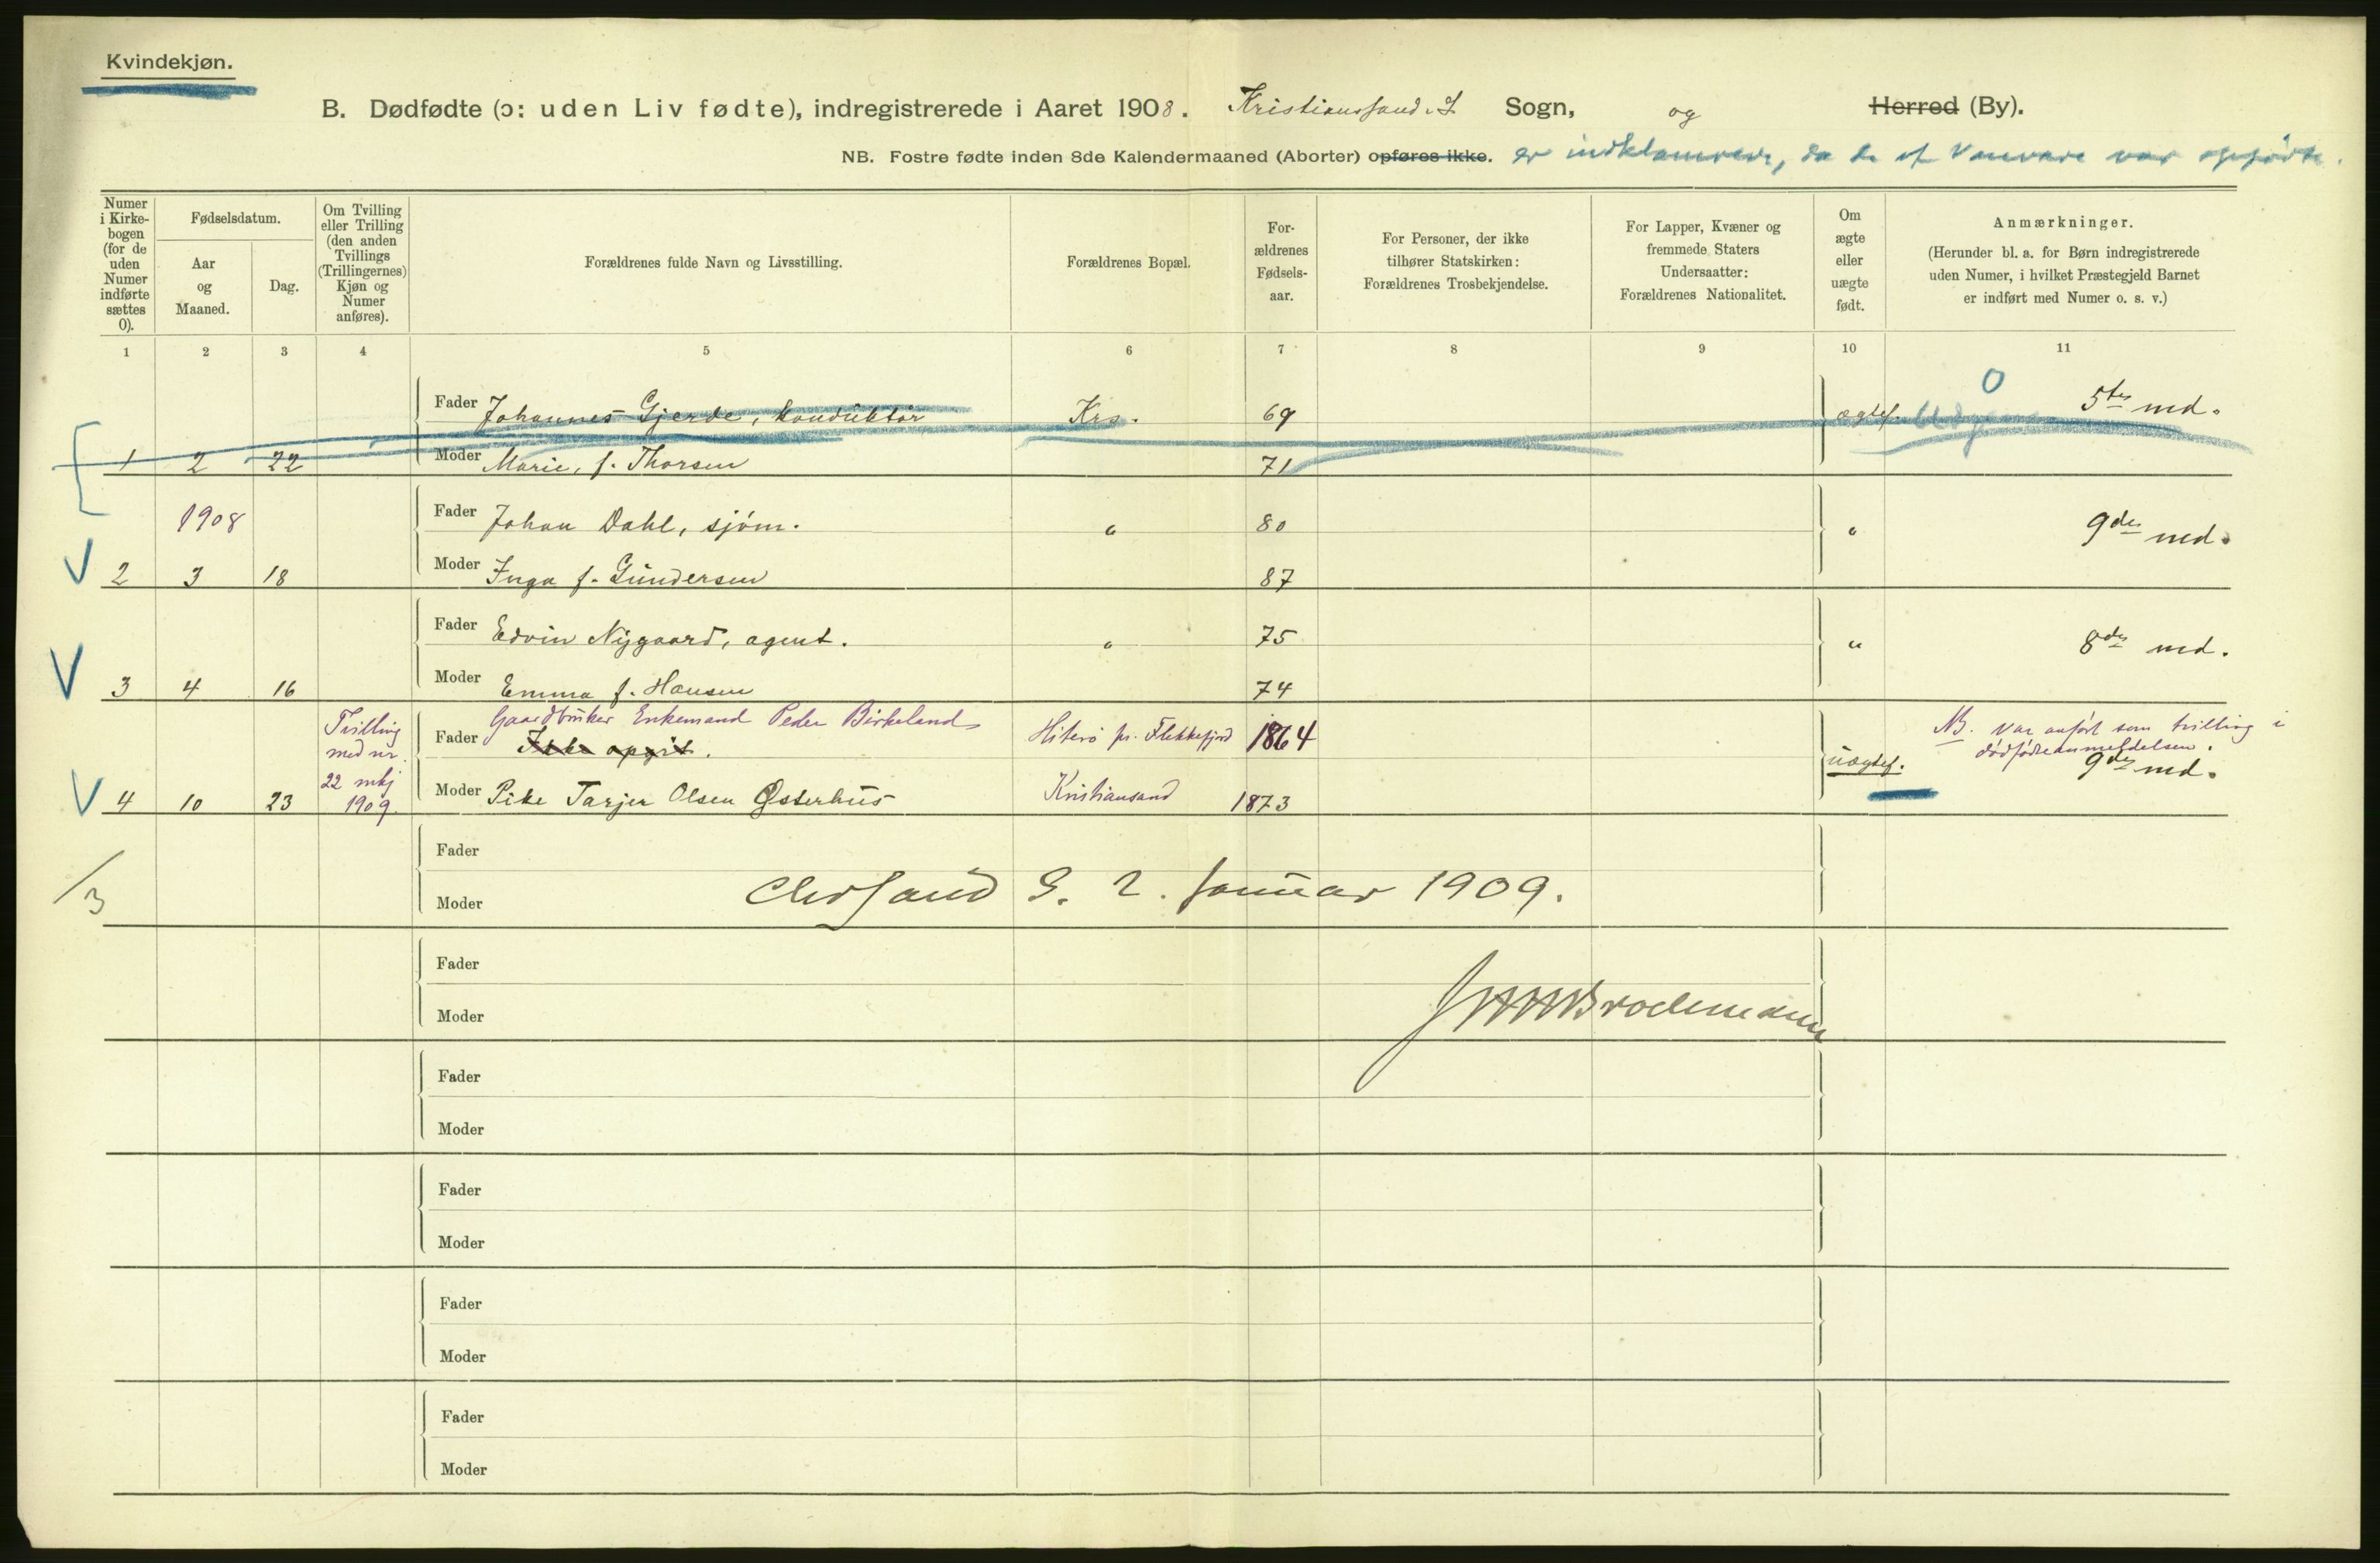 Kvindekjøn.
B. Dødfødte (ɔ: uden Liv fødte), indregistrerede i Aaret 1908. Kristianssand. S Sogn, og Herred (By).
NB. Fostre fødte inden 8de Kalendermaaned (Aborter) opføres ikke. er
Numer i Kirkebogen (for de uden Numer indførte sættes 0).
Fødselsdatum.
Aar og Maaned.
Dag.
Om Tvilling eller Trilling (den anden Tvillings (Trillingernes) Kjøn og Numer anføres).
Forældrenes fulde Navn og Livsstilling.
Forældrenes Bopæl.
Forældrenes Fødselsaar.
For Personer, der ikke tilhører Statskirken: Forældrenes Trosbekjendelse.
For Lapper, Kvæner og fremmede Staters Undersaatter: Forældrenes Nationalitet.
Om ægte eller uægte født.
Anmærkninger.
(Herunder bl. a. for Børn indregistrerede uden Numer, i hvilket Præstegjeld Barnet er indført med Numer o. s. v.)
1 2 3 4 5 6 7 8 9 10 11
Fader Johannes Gjerde, konduktør Krs. 69 ægtef. 0 5te md.
1 2 22 Moder Marie, f. Thorsen 71
1908 Fader Johan Dahl, sjøm. " 80 " 9de md.
2 3 18 Moder Inga f. Gundersen 87
Fader Edvin Nygaard, agent. " 75 " 8de md.
3 4 16 Moder Emma f. Hansen 74
Tvilling med nr. 22 mkj 1909.
Fader Gaardbruker Enkemand Peder Birkeland Hiterø pr. Flekkefjord 1864
Ikke opgit.
NB. var anført som tvilling i dødfødteanmeldelsen.
uægtef. 9de md.
4 10 23 Moder Pike Tarjer Olsen Østerhus Kristiansand 1873
Fader
/3
Moder
Chrsand S. 2. Januar 1909.
Fader
Moder
Fader
Moder
Fader
Moder
Fader
Moder
Fader
Moder